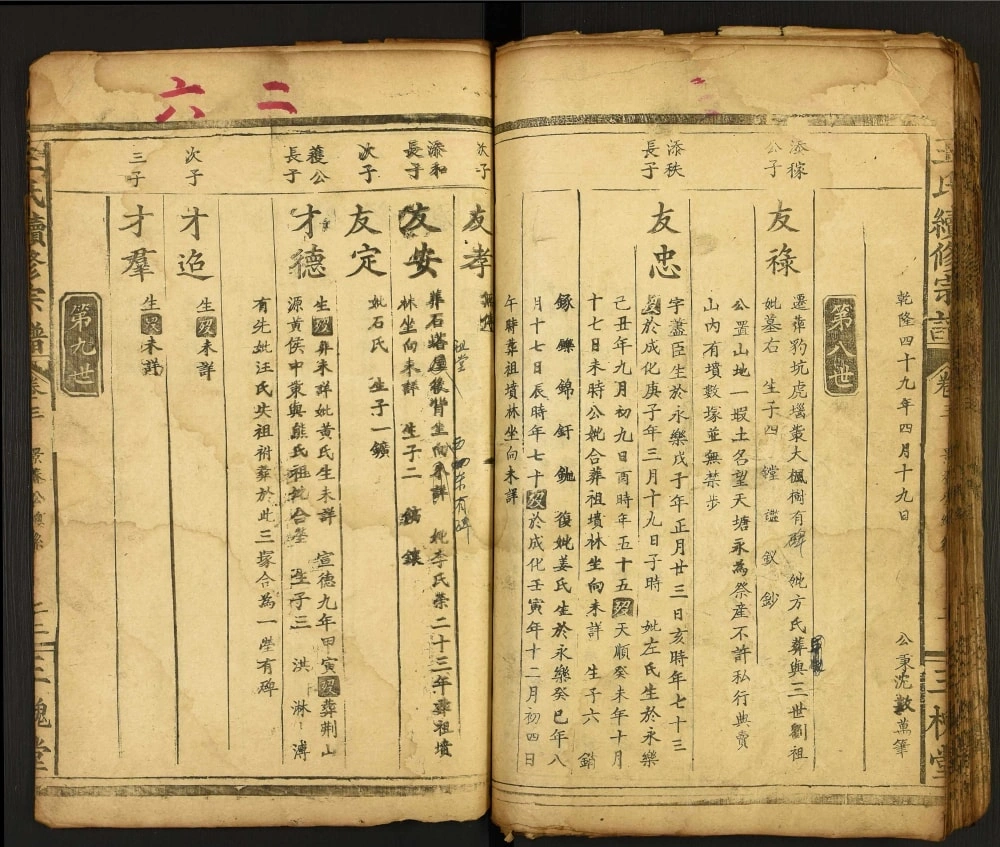 氏續修宗譜 卷三 三槐堂
乾隆四十九年四月十九日 公秉沈數萬筆
第八世
添稼公子
友祿
遷葬豹坑虎堖叢大楓樹有碑 妣方氏葬與三世劉祖
妣墓右 生子四 鏜 鑑 釵 鈔
公置山地一嘏土名望天塘永為祭產不許私行典賣
山內有墳數塚並無禁步
添秩長子
友忠
字藎臣生於永樂戊子年正月廿三日亥時年七十三
歿於成化庚子年三月十九日子時 妣左氏生於永樂
己丑年九月初九日酉時年五十五歿天順癸未年十月
十七日未時公妣合葬祖墳林坐向未詳 生子六 銷
鎵 鑠 錦 釪 鉍 復妣姜氏生於永樂癸巳年八
月十七日辰時年七十歿於成化壬寅年十二月初四日
午時葬祖墳林坐向未詳
次子
友孝
添和長子
友安
葬石塔屋後背坐向未詳 妣李氏榮二十三年葬祖墳
林坐向未詳 生子二 鎮
祖堂 西 有碑
次子
友定
妣石氏 生子一鑛
護公長子
才德
生歿葬未詳妣黃氏生未詳 宣德九年甲寅歿葬荆山
源黃侯中東與熊氏祖妣合塋 生子三 洪 淋 溥
有先妣汪氏失祖祔葬於此三塚合為一塋有碑
次子
才迢
生歿未詳
三子
才羣
生歿未詳
第九世
二 六
氏續修宗譜 卷三 二三 三槐堂